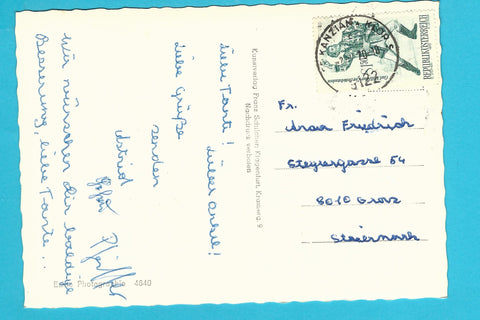 Liebe Tante!
Lieber Onkel!
Liebe Grüße
senden
Astrid
Wir wünschen Dir baldige
Besserung, liebe Tante..
Kunstverlag Franz Schilcher, Klagenfurt,
Nachdruck verboten
Echte Photographie 4640
ST. KANZIAN, KLOP. S.
9122
Fr.
Friedrich
Steyrergasse 54
8010 Graz
Steiermark